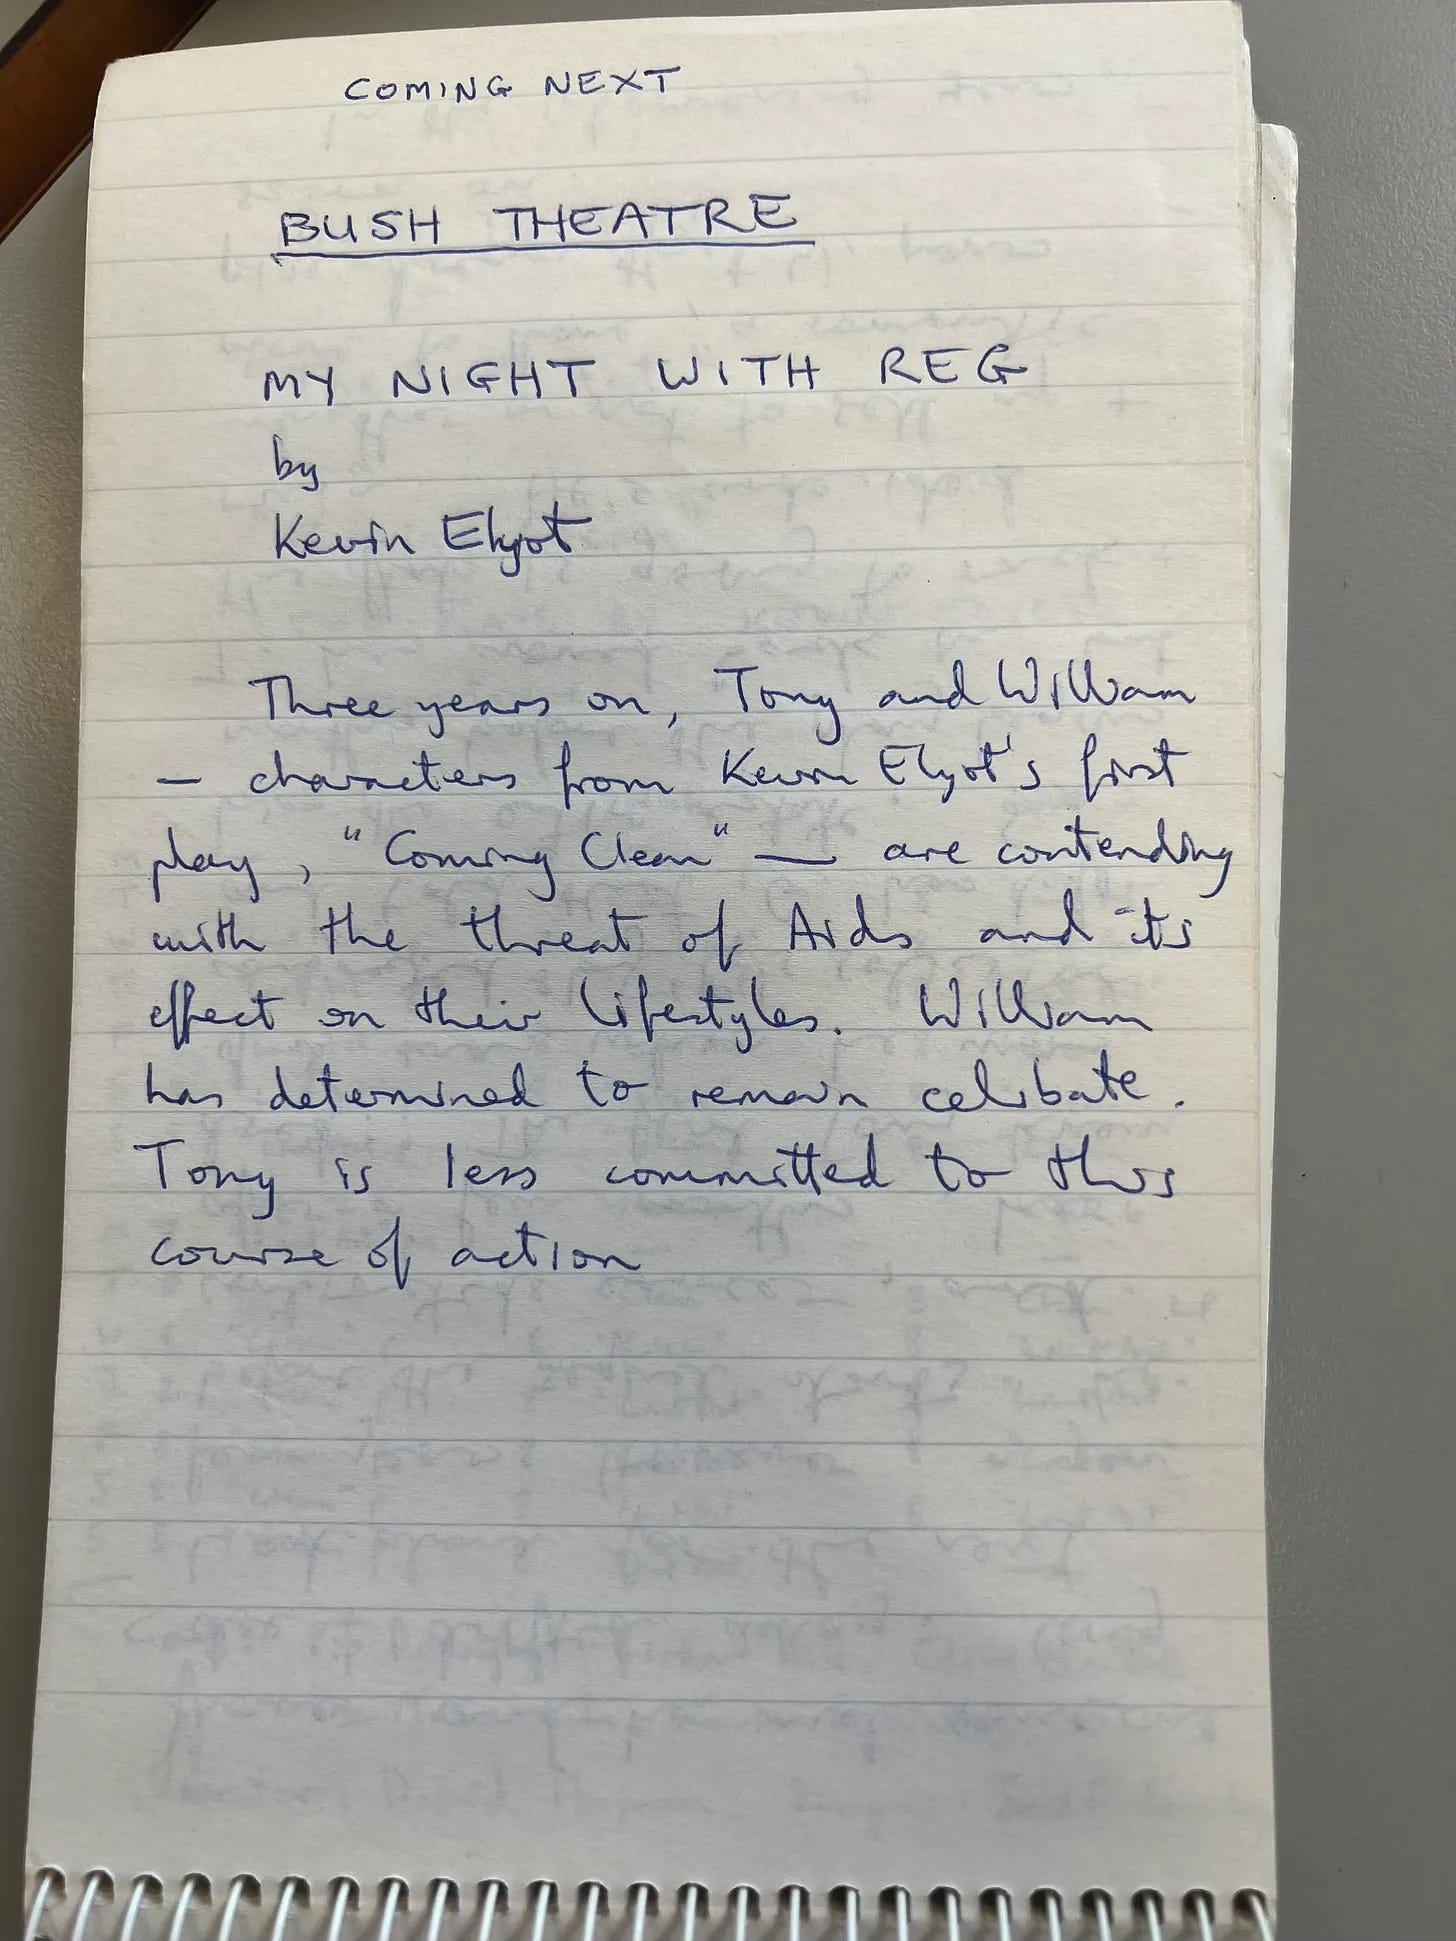 COMING NEXT
BUSH THEATRE
MY NIGHT WITH REG
by
Kevin Elyot
Three years on, Tony and William
— characters from Kevin Elyot's first
play, "Coming Clean" — are contending
with the threat of Aids and its
effect on their lifestyles. William
has determined to remain celibate.
Tony is less committed to this
course of action